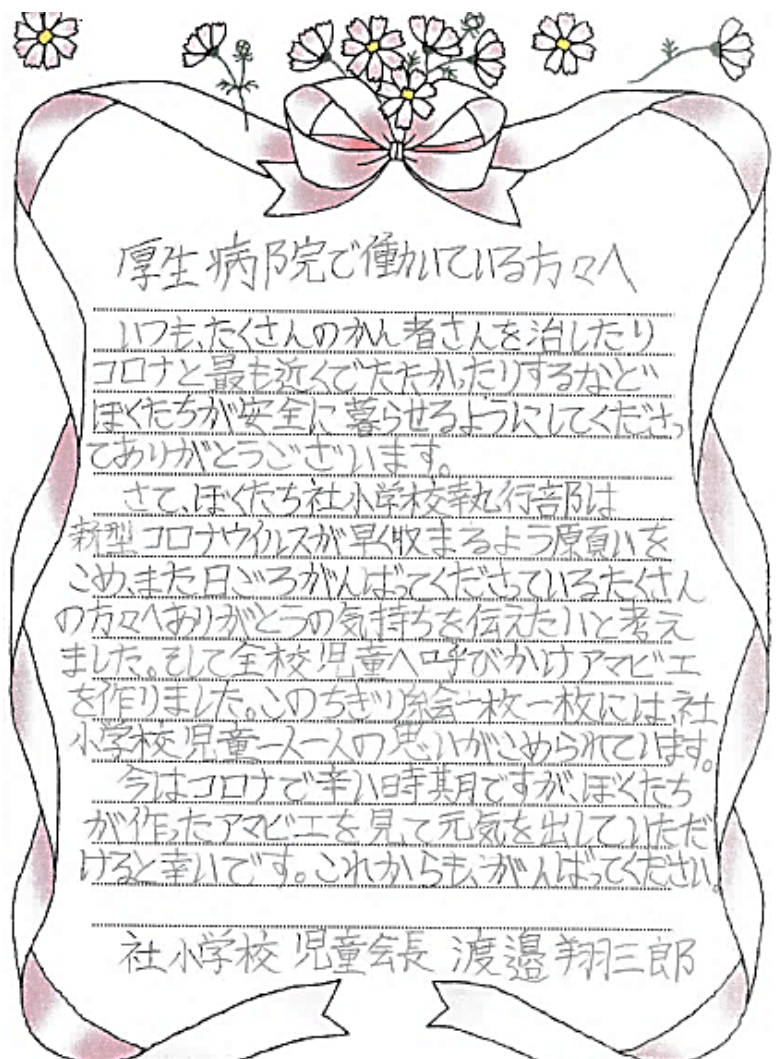 厚生病院で働いている方々へ
いつも、たくさんのかん者さんを治したり
コロナと最も近くでたたかったりするなど
ぼくたちが安全に暮らせるようにしてくださっ
てありがとうございます。
さて、ぼくたち社小学校執行部は
新型コロナウイルスが早く収まるよう願いを
こめ、また日ごろがんばってくださっているたくさん
の方々へありがとうの気持ちを伝えたいと考え
ました。そして全校児童へ呼びかけアマビエ
を作りました。このちぎり絵一枚一枚には、社
小学校児童一人一人の思いがこめられています。
今はコロナで辛い時期ですが、ぼくたち
が作ったアマビエを見て元気を出していただ
けると幸いです。これからも、がんばってください。
社小学校 児童会長 渡邉翔三郎